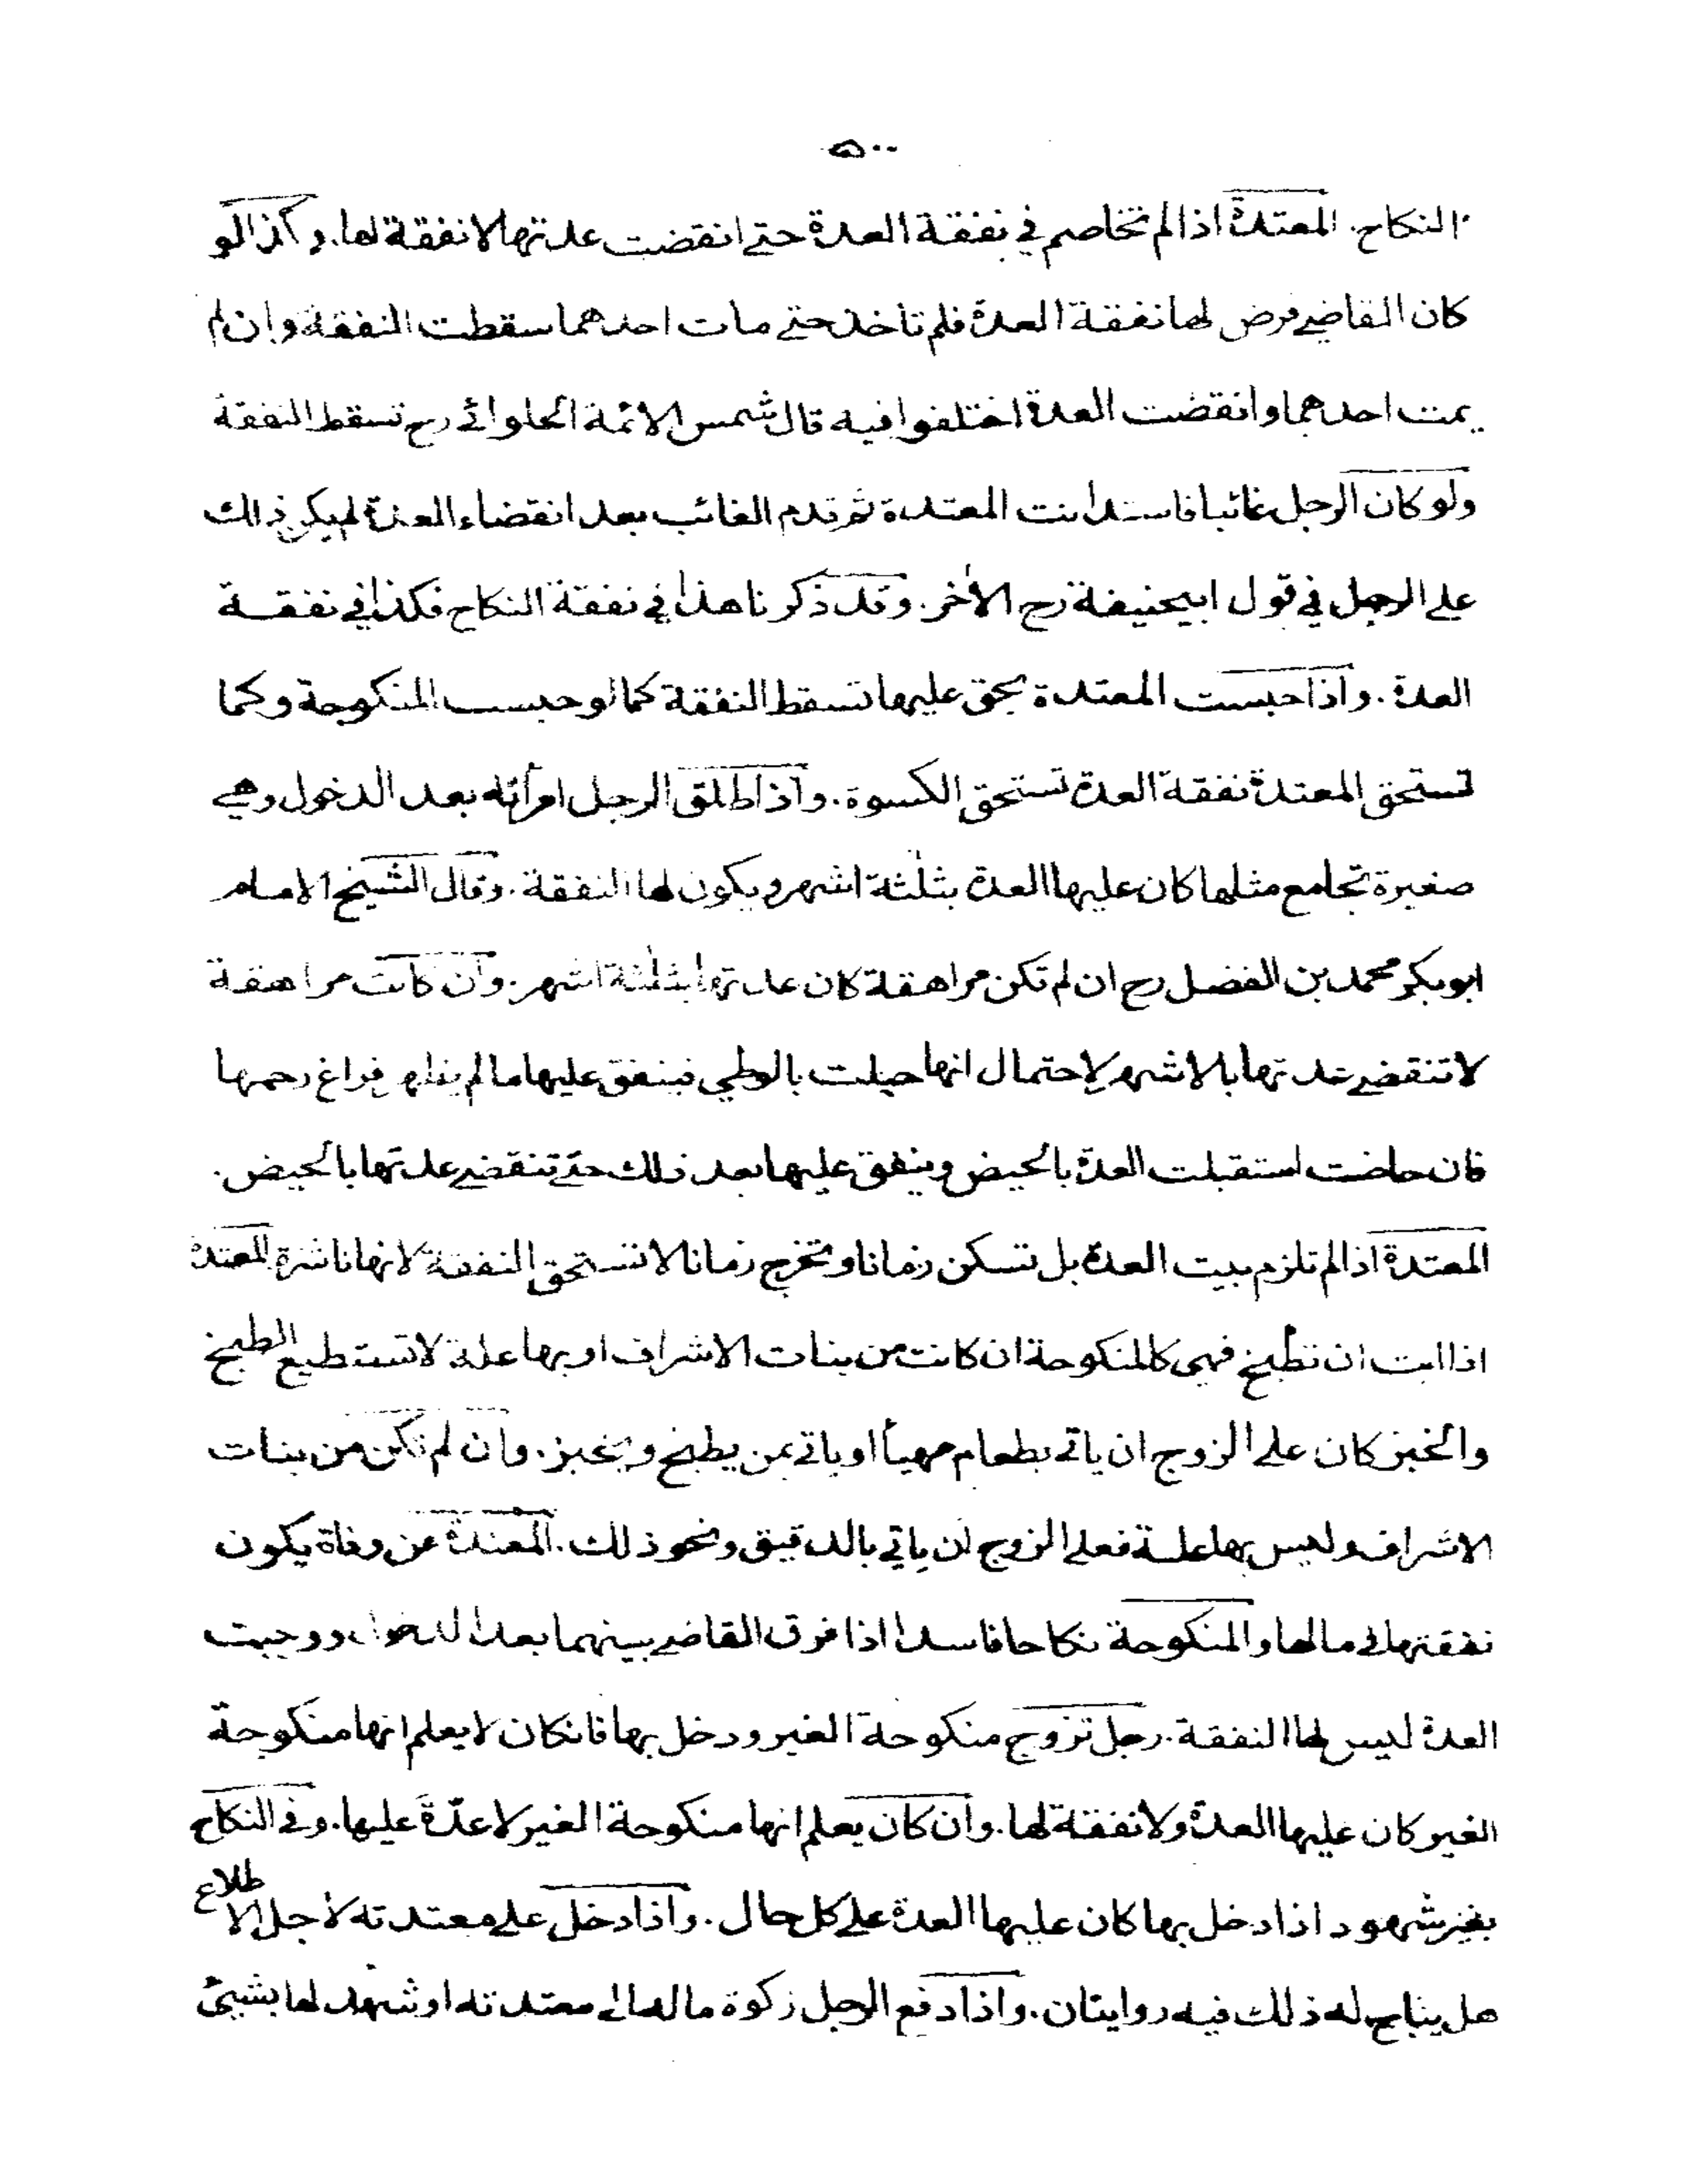 ٥٠٠
النكاح. المعتدة اذا لم تخاصم في نفقة العدة حتے انقضت عدتها لا نفقة لها. وكذا لو
كان القاضے فرض لها نفقة العدة فلم تاخذ حتے مات احدهما سقطت النفقة وان لم
يمت احدهما وانقضت العدة اختلفوا فيه قال شمس الائمة الحلوائے رح تسقط النفقة
ولو كان الرجل غائبا فاستدانت المعتدة ثم قدم الغائب بعد انقضاء العدة لم يكن ذالك
علے الرجل في قول ابيحنيفة رح الاٰخر. وقد ذكرنا هذا في نفقة النكاح فكذا في نفقة
العدة. واذا حبست المعتدة بحق عليها تسقط النفقة كما لو حبست المنكوحة وكما
تستحق المعتدة نفقة العدة تستحق الكسوة. واذا طلق الرجل امرأته بعد الدخول وهے
صغيرة تجامع مثلها كان عليها العدة بثلٰثة اشهر ويكون لها النفقة. وقال الشيخ الامام
ابوبكر محمد بن الفضل رح ان لم تكن مراهقة كان عدتها بثلٰثة اشهر. وان كانت مراهقة
لا تنقضے عدتها بالاشهر لاحتمال انها حبلت بالوطي فينفق عليها ما لم يظهر فراغ رحمها
فان حاضت استقبلت العدة بالحيض وينفق عليها بعد ذلك حتے تنقضے عدتها بالحيض.
المعتدة اذا لم تلزم بيت العدة بل تسكن زمانا وتخرج زمانا لا تستحق النفقة لانها ناشزة المعتدة
اذا ابت ان تطبخ فهي كالمنكوحة ان كانت من بنات الاشراف او بها علة لا تستطيع الطبخ
والخبز كان علے الزوج ان ياتے بطعام مهيأ او ياتے بمن يطبخ ويخبز. وان لم تكن من بنات
الاشراف وليس بها علة فعلے الزوج ان ياتي بالدقيق ونحو ذلك. المعتدة عن وفاة يكون
نفقتها في مالها والمنكوحة نكاحا فاسدا اذا فرق القاضے بينهما بعد الدخول ووجبت
العدة ليس لها النفقة. رجل تزوج منكوحة الغير ودخل بها فانكان لا يعلم انها منكوحة
الغير كان عليها العدة ولا نفقة لها. وان كان يعلم انها منكوحة الغير لا عدّة عليها. وفي النكاح
بغير شهود اذا دخل بها كان عليها العدة علے كل حال. واذا دخل علے معتدته لاجل الاطلاع
هل يباح له ذلك فيه روايتان. واذا دفع الرجل زكوة ماله الے معتدته او شهد لها بشيئ